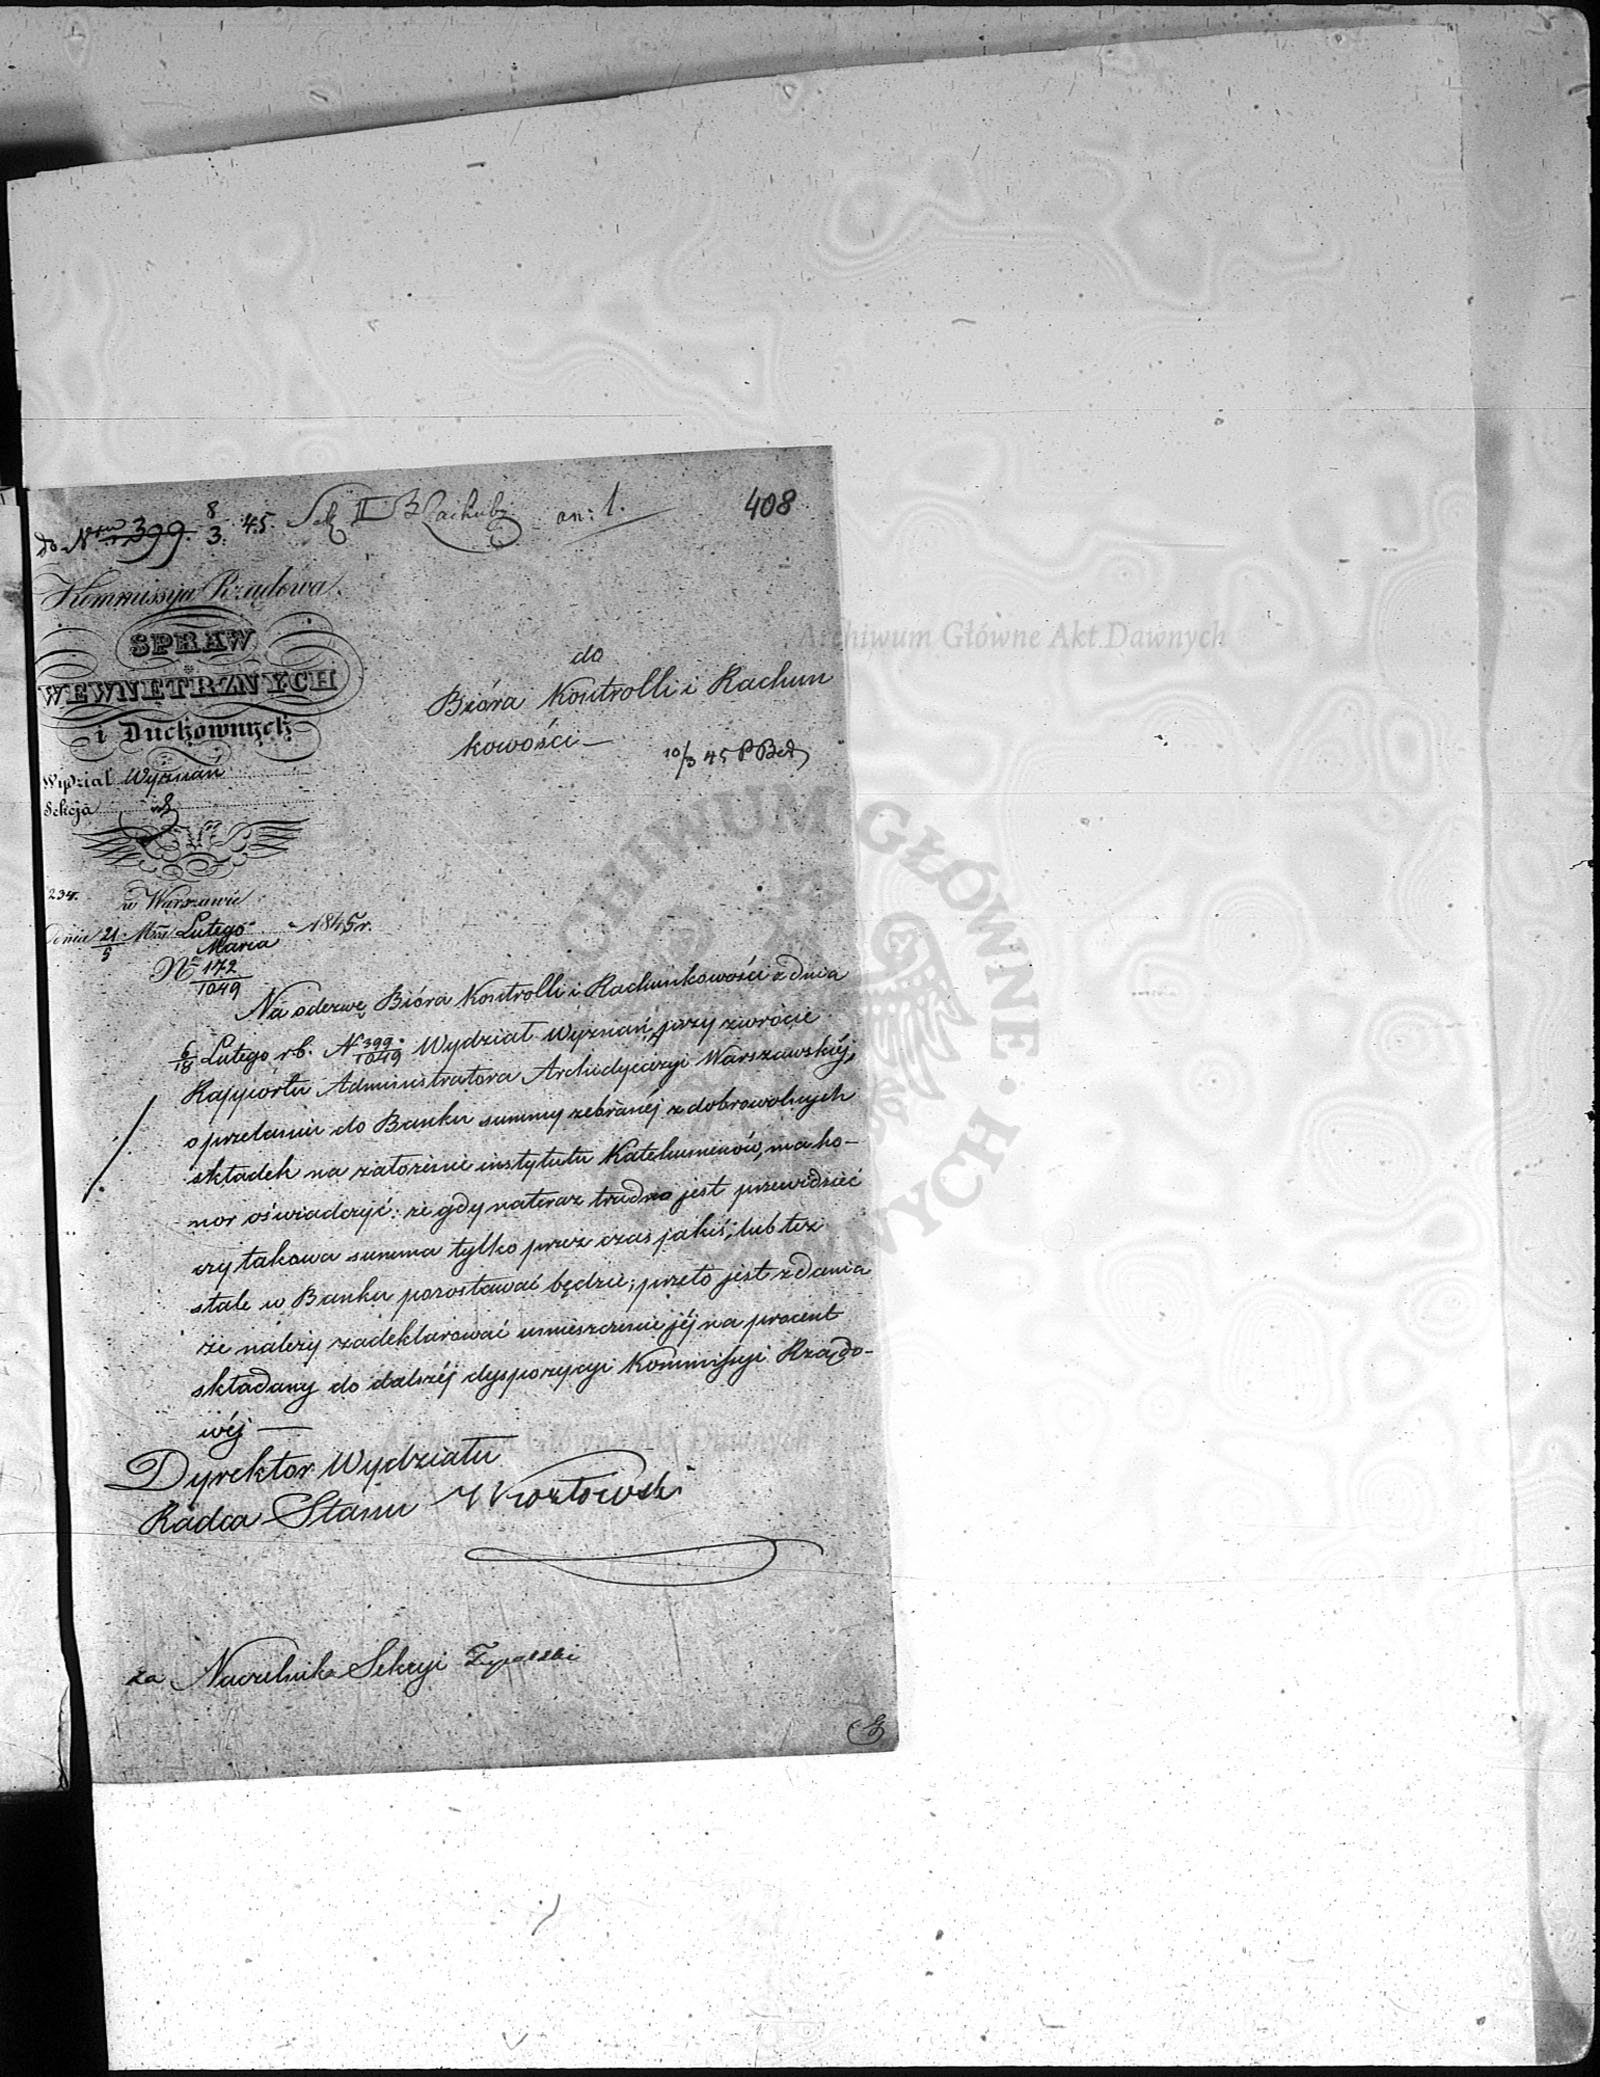 do Nru 399. 8/3. 45. Sek II an: 1.
408
Kommissya Rządowa
SPRAW
WEWNĘTRZNYCH
i Duchownych
Wydział Wyznań
Sekcja
do
Bióra Kontrolli i Rachun
kowości —
10/3 45
234.
w Warszawie
Dnia 21/5 Mca Lutego/Marca 1845 r.
Nº 172/1049
Na odezwę Bióra Kontrolli i Rachunkowości z dnia
6/18 Lutego rb. N 399/1049 Wydział Wyznań, przy zwrocie
Rapportu Administratora Archidyecezyi Warszawskiéj,
o przelaniu do Banku summy zebranéj z dobrowolnych
składek na założenie instytutu Katehumenów, ma ho-
nor oświadczyć: że gdy nateraz trudno jest przewidzieć
czy takowa summa tylko przez czas jakiś, lub też
stale w Banku pozostawać będzie; przeto jest zdania
że należy zadeklarować umieszczenie jéj na procent
składany do dalszéj dyspozycyi Kommissyi Rządo-
wéj —
Dyrektor Wydziału
Radca Stanu Kozłowski
za Naczelnika Sekcyi
Archiwum Główne Akt Dawnych
ARCHIWUM GŁÓWNE AKT DAWNYCH
Archiwum Główne Akt Dawnych